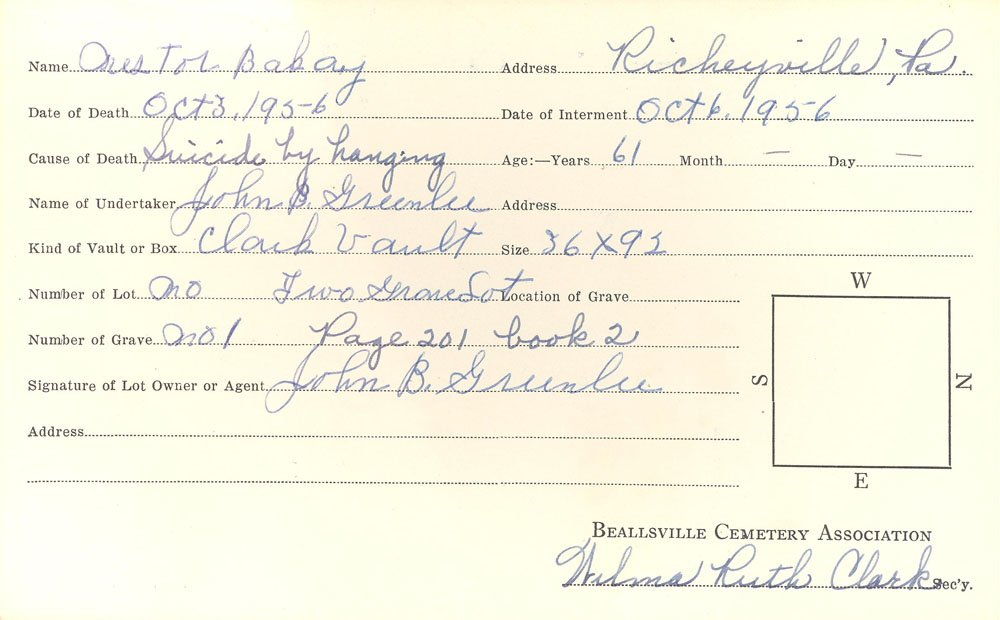 Name Nestor Bakay Address Richeyville, Pa.
Date of Death Oct 3, 1956 Date of Interment Oct 6, 1956
Cause of Death Suicide by hanging Age:—Years 61 Month — Day —
Name of Undertaker John B. Greenlee Address
Kind of Vault or Box Clark Vault Size 36 X 92
Number of Lot no Two Grave Lot Location of Grave
Number of Grave no 1 Page 201 book 2
Signature of Lot Owner or Agent John B. Greenlee
Address
W
S
N
E
BEALLSVILLE CEMETERY ASSOCIATION
Wilma Ruth Clark Sec'y.